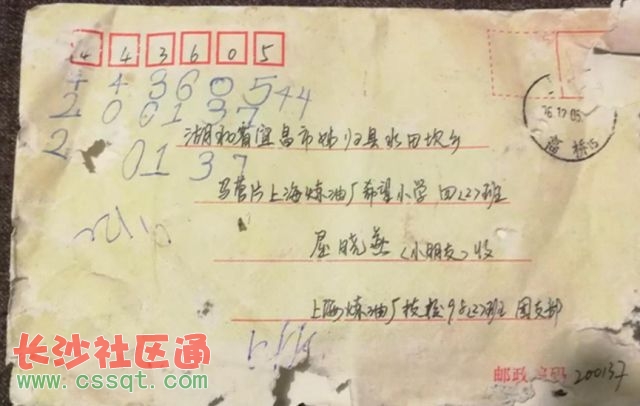 443605
44360544
200137
2 0137
湖北省宜昌市姊归县水田坝乡
马营片上海炼油厂希望小学 四<2>班
屈晓燕(小朋友)收
上海炼油厂技校95<2>班 团支部
邮政 码 200137
高桥15
长沙社区通
www.cssqt.com